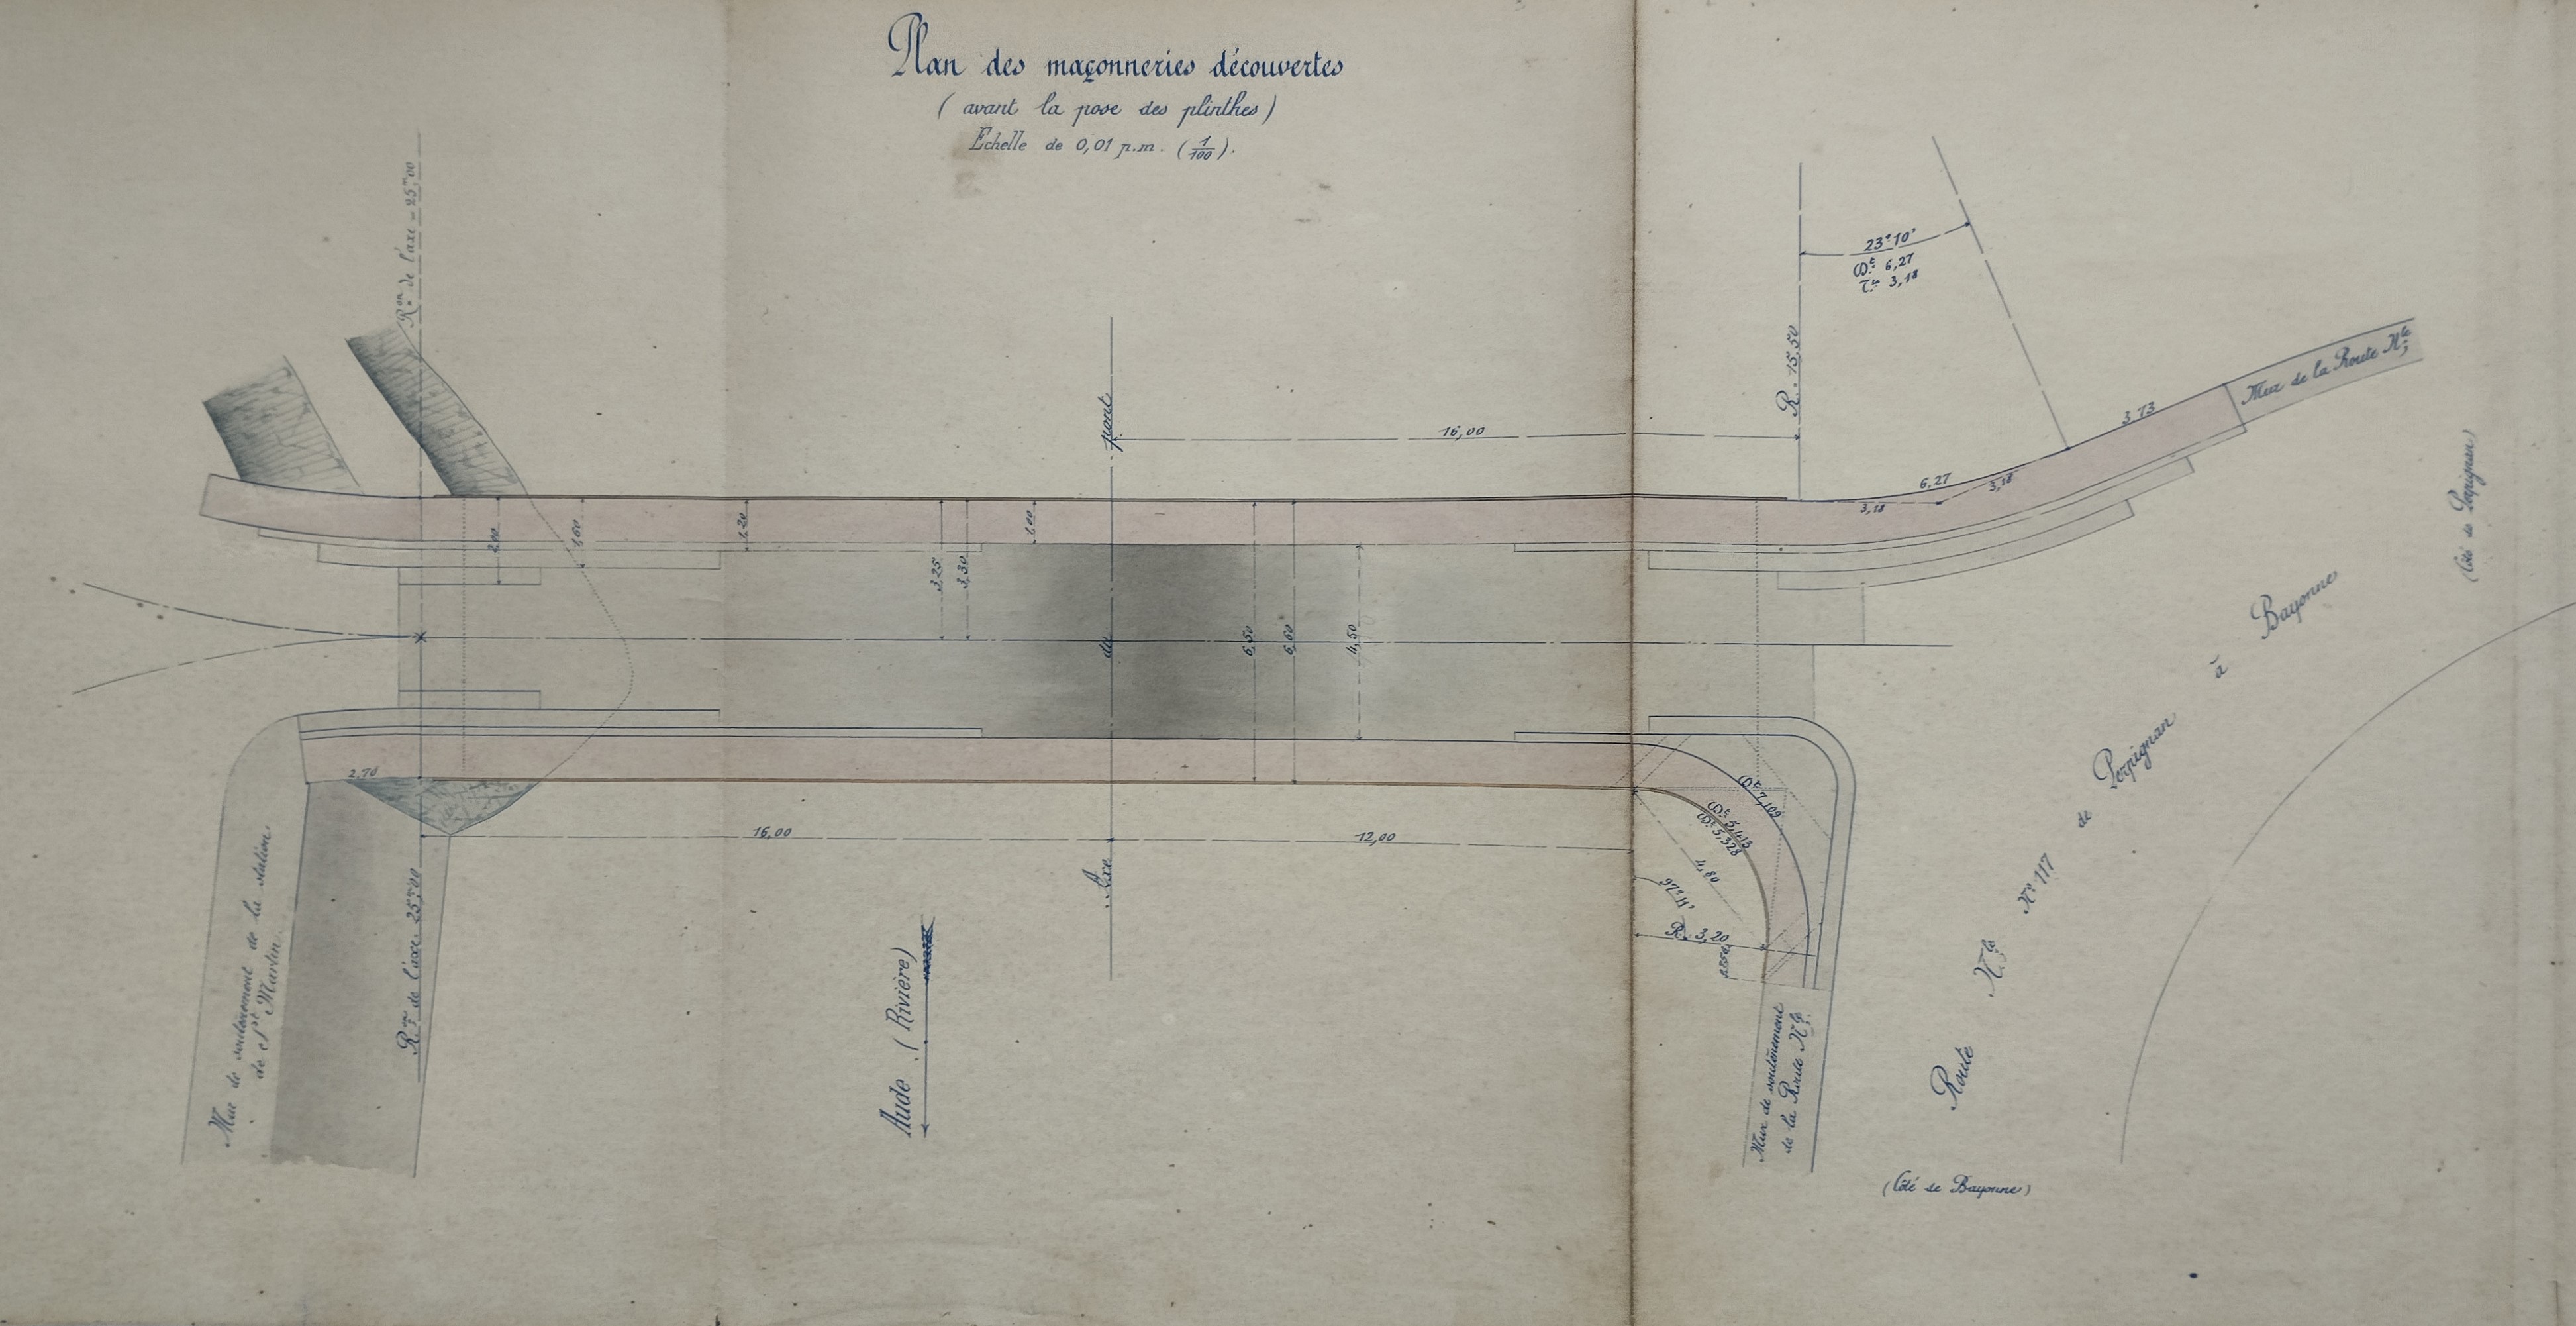 Plan des maçonneries découvertes
(avant la pose des plinthes)
Echelle de 0,01 p.m. (1/100).
R.on de l'axe = 25,m00
23°10'
D.t 6,27
T.te 3,18
R. 15,50
16,00
Mur de la Route N.le
3,73
6,27
3,18
3,18
(Côté de Perpignan)
2,00
1,60
1,20
3,25
3,30
1,00
6,50
6,60
4,50
Axe du pont
2,70
16,00
12,00
D.t 7,109
D.t 5,413
D.t 5,328
4,80
97°11'
R. 3,20
Mur de soutènement de la station
de S.t Martin
R.on de l'axe 25,m00
Aude (Rivière)
Mur de soutènement
de la Route N.le
Route N.le N.o 117 de Perpignan à Bayonne
(Côté de Bayonne)